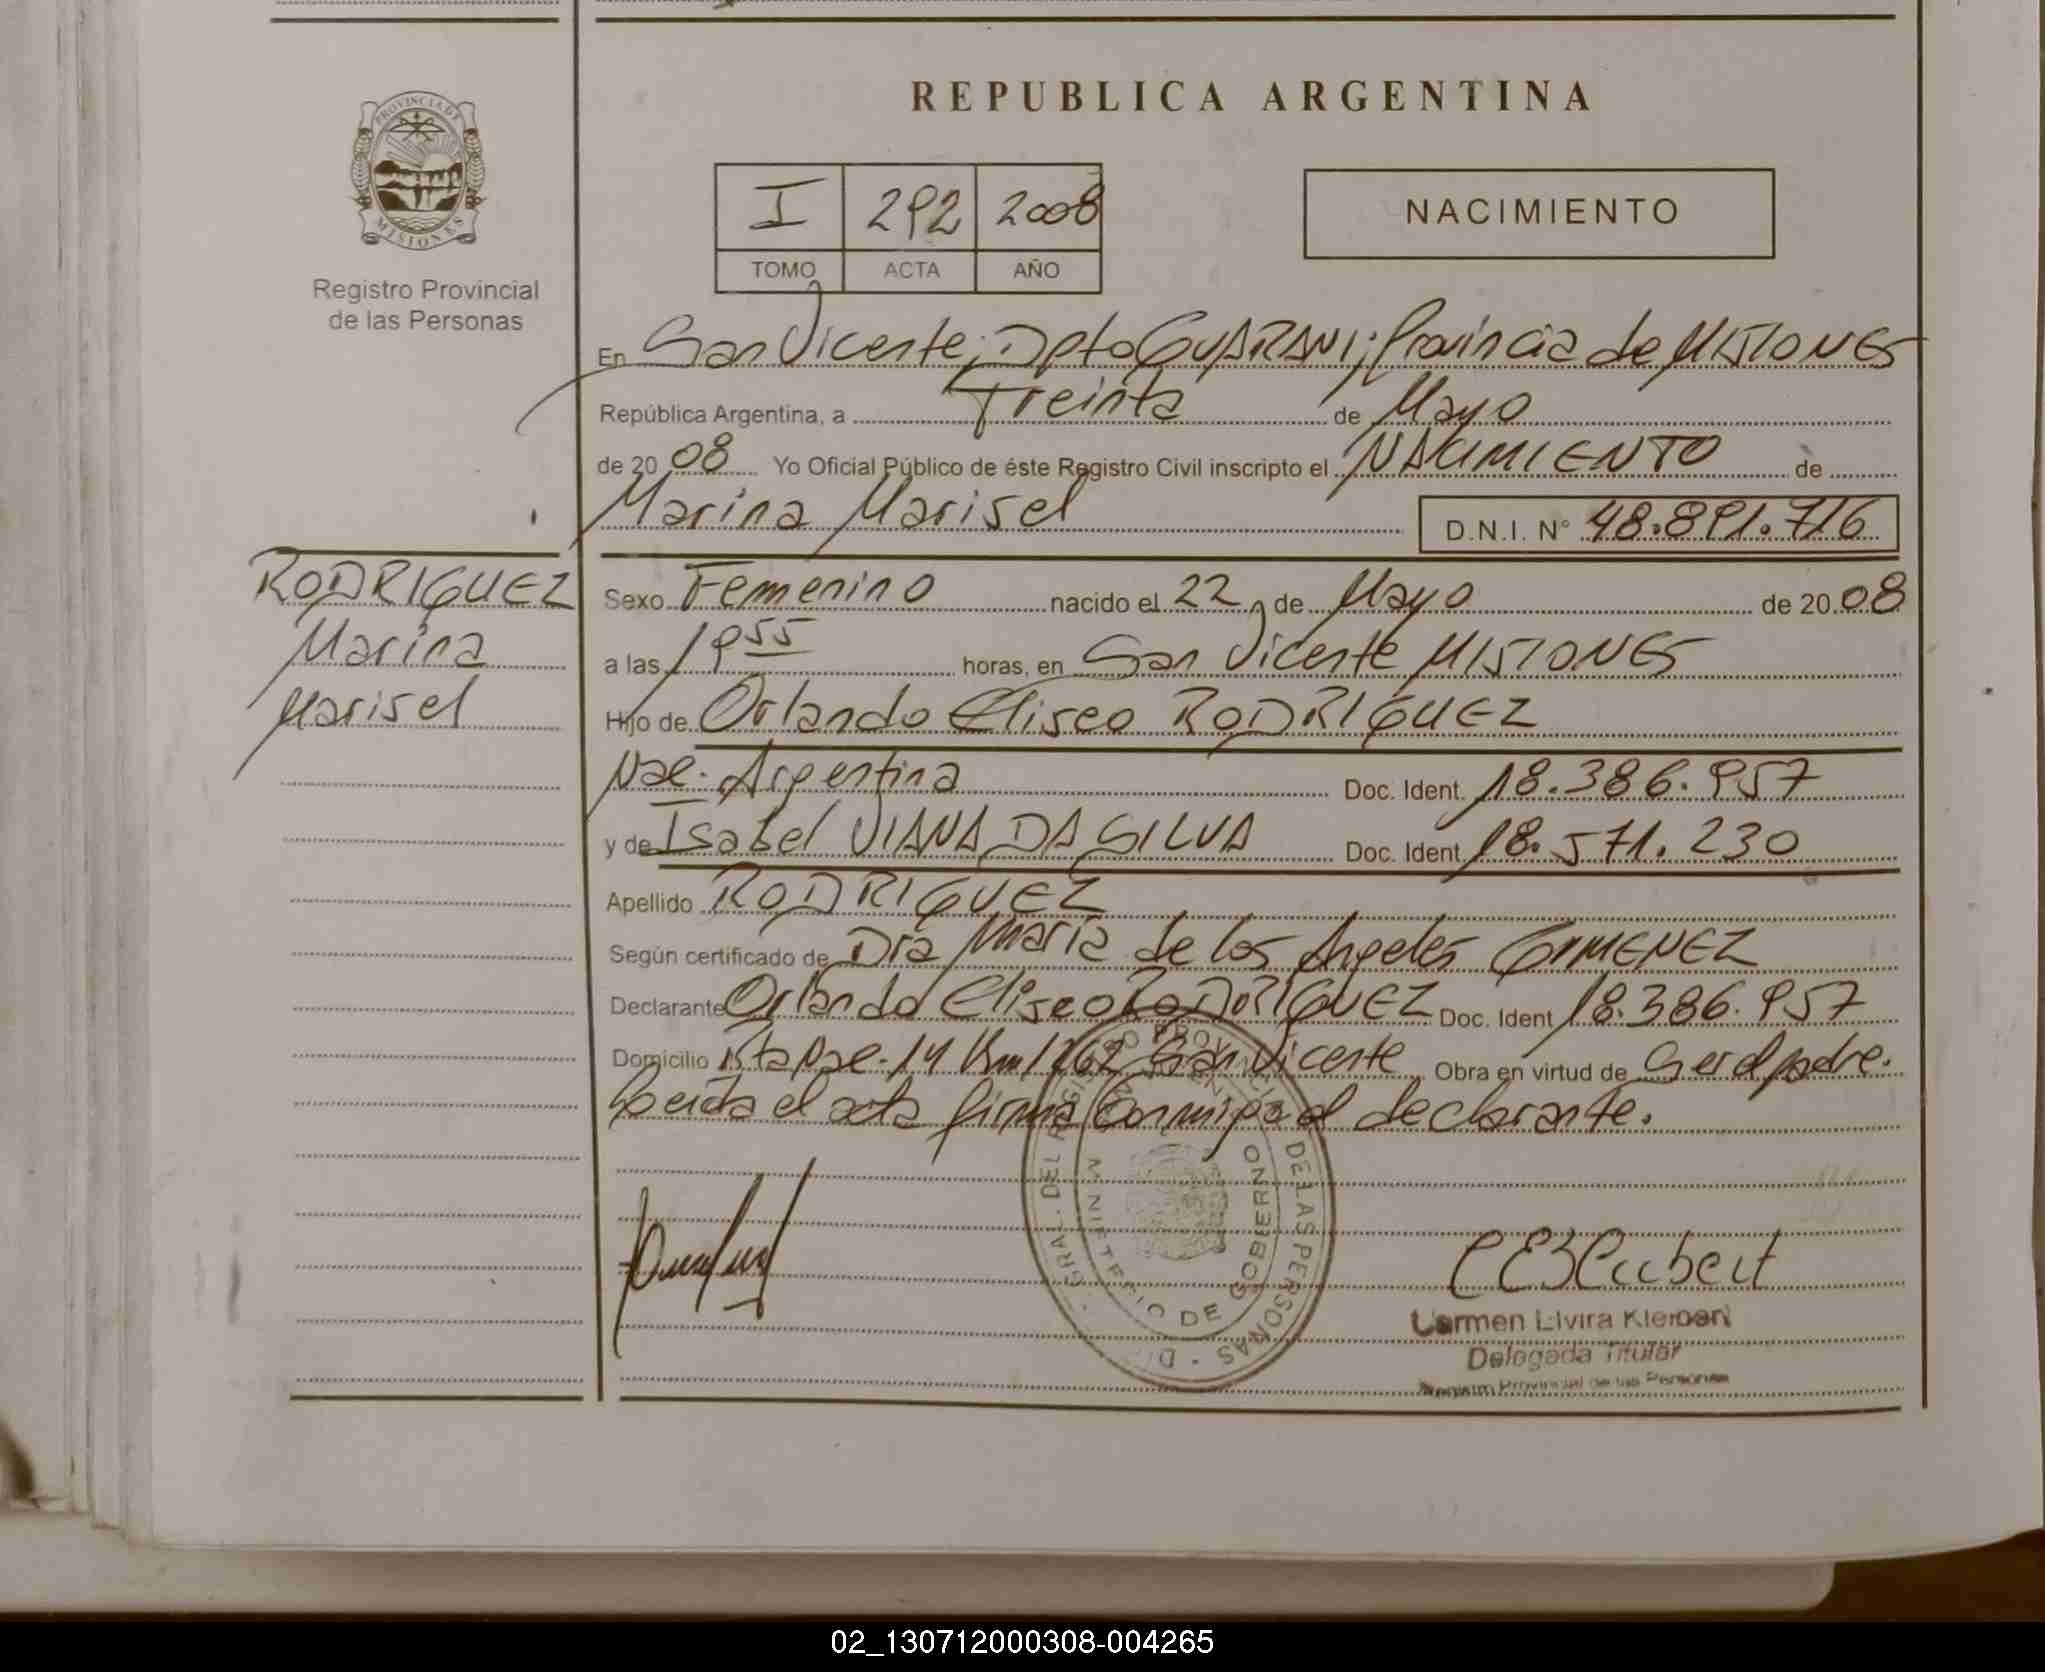 REPUBLICA ARGENTINA
PROVINCIA DE
MISIONES
Registro Provincial
de las Personas
I 292 2008
TOMO ACTA AÑO
NACIMIENTO
En San Vicente, Dpto GUARANI; Provincia de MISIONES
República Argentina, a Treinta de Mayo
de 2008 Yo Oficial Público de éste Registro Civil inscripto el NACIMIENTO de
Marina Marisel D.N.I. N° 48.891.716
RODRIGUEZ
Marina
Marisel
Sexo Femenino nacido el 22 de Mayo de 2008
a las 19 55 horas, en San Vicente MISIONES
Hijo de Orlando Eliseo RODRIGUEZ
Nac. Argentina Doc. Ident. 18.386.957
y de Isabel VIANA DA SILVA Doc. Ident. 18.571.230
Apellido RODRIGUEZ
Según certificado de Dra Maria de los Angeles GIMENEZ
Declarante Orlando Eliseo RODRIGUEZ Doc. Ident 18.386.957
Domicilio Nac. 14 Km 1262 San Vicente Obra en virtud de ser el padre.
el acta firma conmigo el declarante.
DELAS PERSONAS
MINISTERIO DE GOBIERNO
Carmen Elvira
Delegada Titular
Registro Provincial de las Personas
02_130712000308-004265